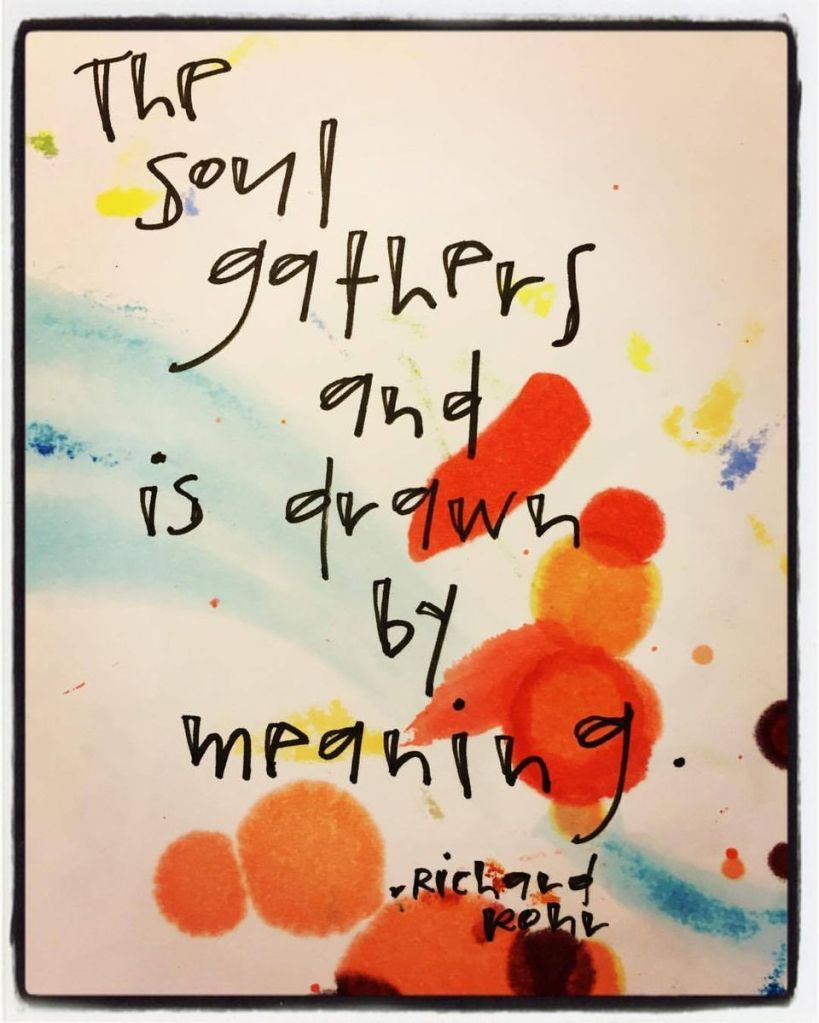 The
soul
gathers
and
is drawn
by
meaning.
- Richard
Rohr